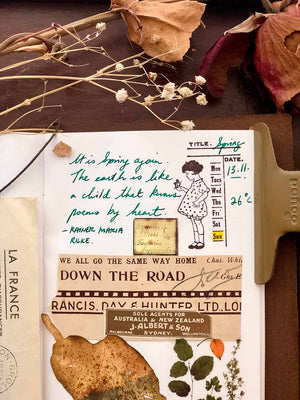 TITLE. Spring
DATE.
13.11.
26°C
Mon
Tues
Wed
Thu
Fri
Sat
Sun
It is Spring again.
The earth is like
a child that knows
poems by heart.
- RAINER MARIA
RILKE.
WE ALL GO THE SAME WAY HOME
DOWN THE ROAD
FRANCIS, DAY & HUNTER LTD. LON
SOLE AGENTS FOR
AUSTRALIA & NEW ZEALAND
J. ALBERT & SON
MELBOURNE SYDNEY.
LA FRANCE